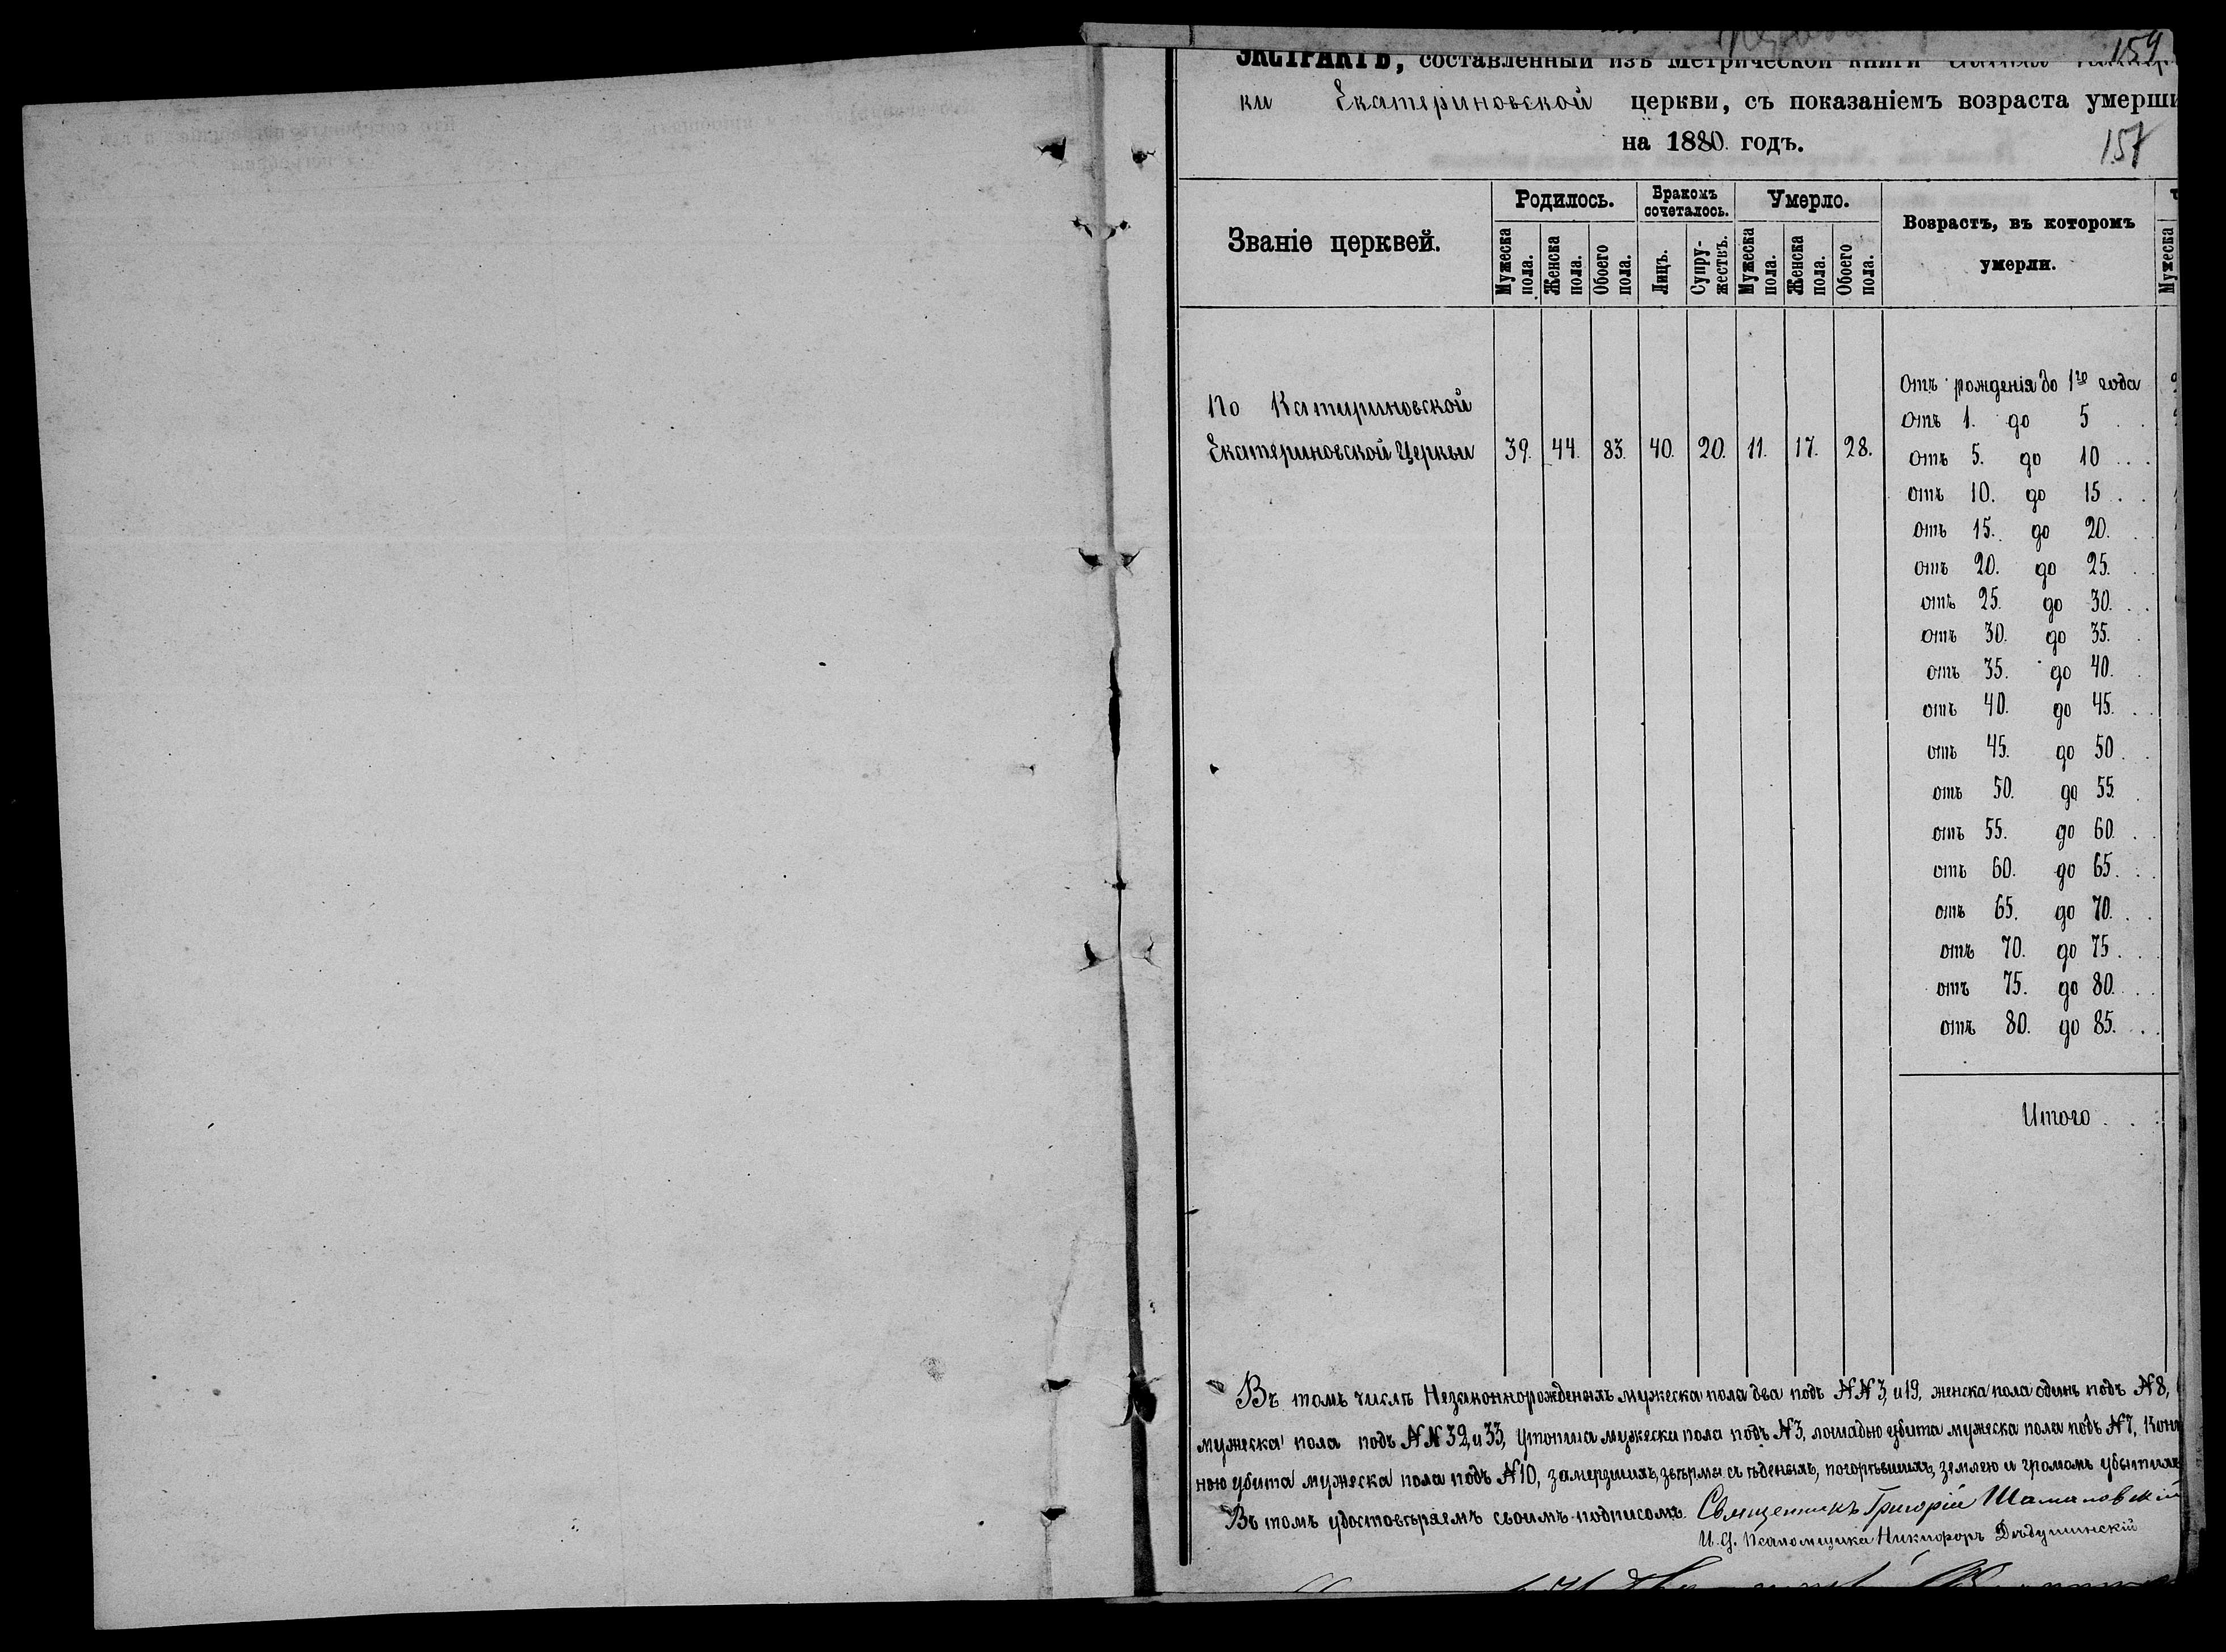 159
ЭКСТРАКТЪ, составленный изъ Метрической книги
ки Екатериновской церкви, съ показаніемъ возраста умерши
на 1880. годъ.
157
Званіе церквей.
Родилось.
Бракомъ сочеталось.
Умерло.
Возрастъ, въ котором умерли.
Мужеска пола.
Женска пола.
Обоего пола.
Лицъ.
Супружествъ.
Мужеска пола.
Женска пола.
Обоего пола.
Мужеска
По Катириновской
Екатериновской Церкви 39. 44. 83. 40. 20. 11. 17. 28.
Отъ рожденія до 1го года
Отъ 1. до 5 . .
отъ 5. до 10 . . .
отъ 10. до 15 . .
отъ 15. до 20. .
отъ 20. до 25. .
отъ 25. до 30. . .
отъ 30. до 35. .
отъ 35. до 40. .
отъ 40. до 45. . .
отъ 45. до 50 . .
отъ 50. до 55. .
отъ 55. до 60. . .
отъ 60. до 65. . .
отъ 65. до 70. . .
отъ 70. до 75 . . .
отъ 75. до 80. . .
отъ 80. до 85. . .
Итого . . .
Въ томъ числѣ Незаконнорожденыхъ мужеска пола два подъ №№ 3, и 19, женска пола одинъ подъ № 8,
мужеска пола подъ №№ 32, и 33, утопша мужеска пола подъ № 3, лошадью убита мужеска пола подъ № 7,
ною убита мужеска пола подъ № 10, замерзшихъ, звѣрмы съѣденыхъ, погорѣвшихъ, землею и громомъ убытихъ
Въ томъ удостовѣряемъ своимъ подписомъ. Священникъ Григорій Шамановскій
И. д. Псаломщика Никифоръ Дѣдушинскій